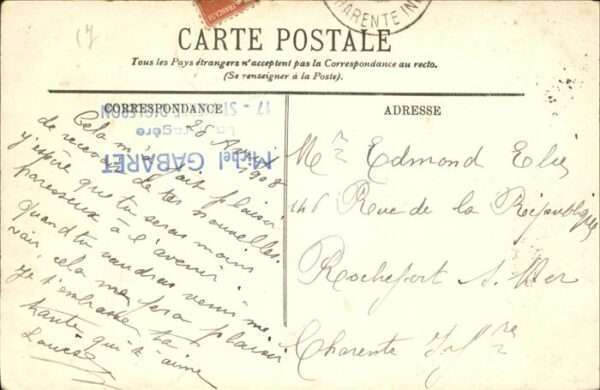 17
FRANÇAISE
CHARENTE INF
CARTE POSTALE
Tous les Pays étrangers n'acceptent pas la Correspondance au recto.
(Se renseigner à la Poste).
CORRESPONDANCE
17 - ST
D'OLERON
Michel GABARET
25 1908
Cela m'a fait plaisir
de recevoir de tes nouvelles.
J'espère que tu seras moins
paresseux à l'avenir
Quand tu voudras venir me
voir, cela me fera plaisir
Je t'embrasse ta
tante qui t'aime
Louise
ADRESSE
Mr Edmond Elie
146 Rue de la République
Rochefort s. Mer
Charente Infre